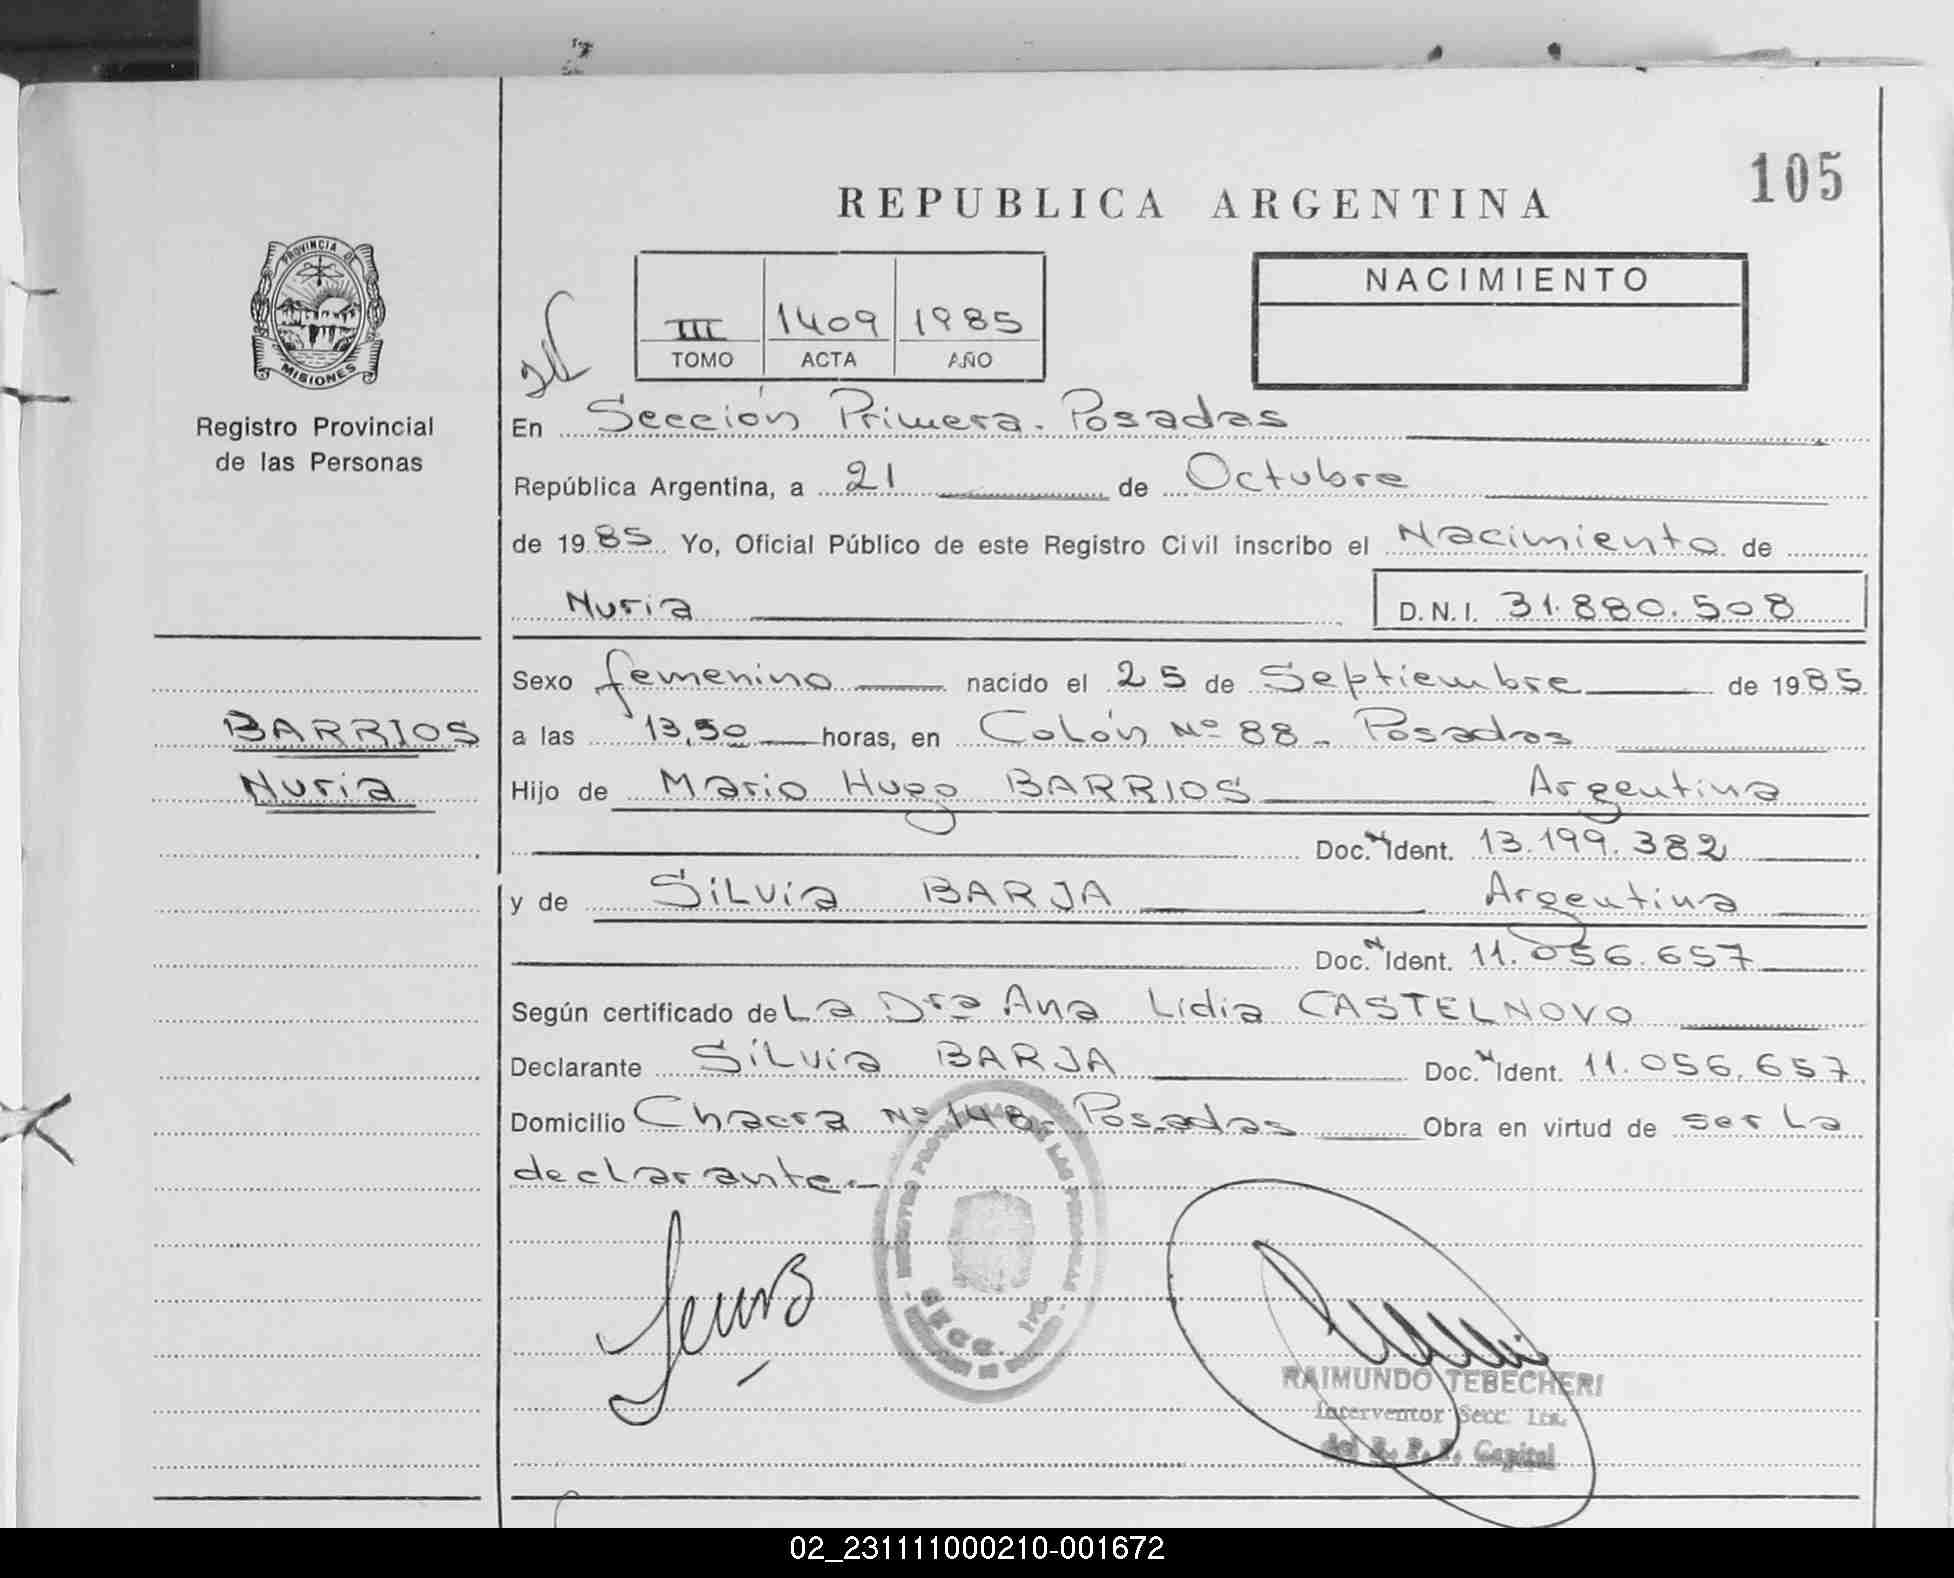 105
REPUBLICA ARGENTINA
PROVINCIA DE
MISIONES
Registro Provincial
de las Personas
III 1409 1985
TOMO ACTA AÑO
NACIMIENTO
En Sección Primera. Posadas
República Argentina, a 21 de Octubre
de 1985 Yo, Oficial Público de este Registro Civil inscribo el Nacimiento de
Nuria D.N.I. 31.880.508
Sexo femenino nacido el 25 de Septiembre de 1985
BARRIOS
Nuria
a las 13,50 horas, en Colón Nº 88 - Posadas
Hijo de Mario Hugo BARRIOS Argentina
Doc. N Ident. 13.199.382
y de Silvia BARJA Argentina
Doc. N Ident. 11.056.657
Según certificado de La Dra Ana Lidia CASTELNOVO
Declarante Silvia BARJA Doc. N Ident. 11.056.657
Domicilio Chacra Nº 148. Posadas Obra en virtud de ser la
declarante.-
SECC. 1ra.
RAIMUNDO TEBECHERI
Interventor Secc. 1ra.
del R. P. P. Capital
02_231111000210-001672